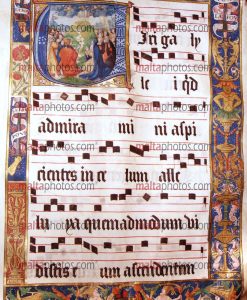 maltaphotos.com
Viri ga ly
le i qd
maltaphotos.com
admira mi ni aspi
maltaphotos.com
cientes in ce lum alle
maltaphotos.com
lu ya quemadmodum vi
maltaphotos.com
distis e um ascendentem
maltaphotos.com